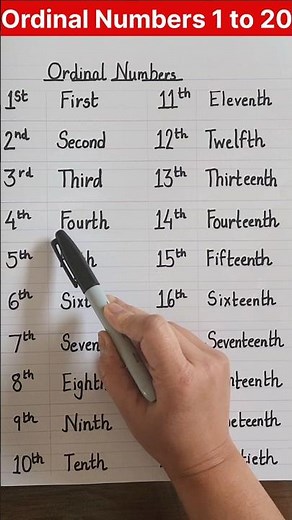 Ordinal Numbers 1 to 20
Ordinal Numbers
1st First 11th Eleventh
2nd Second 12th Twelfth
3rd Third 13th Thirteenth
4th Fourth 14th Fourteenth
5th 15th Fifteenth
6th 16th Sixteenth
7th Seventeenth
8th
9th Ninth
10th Tenth